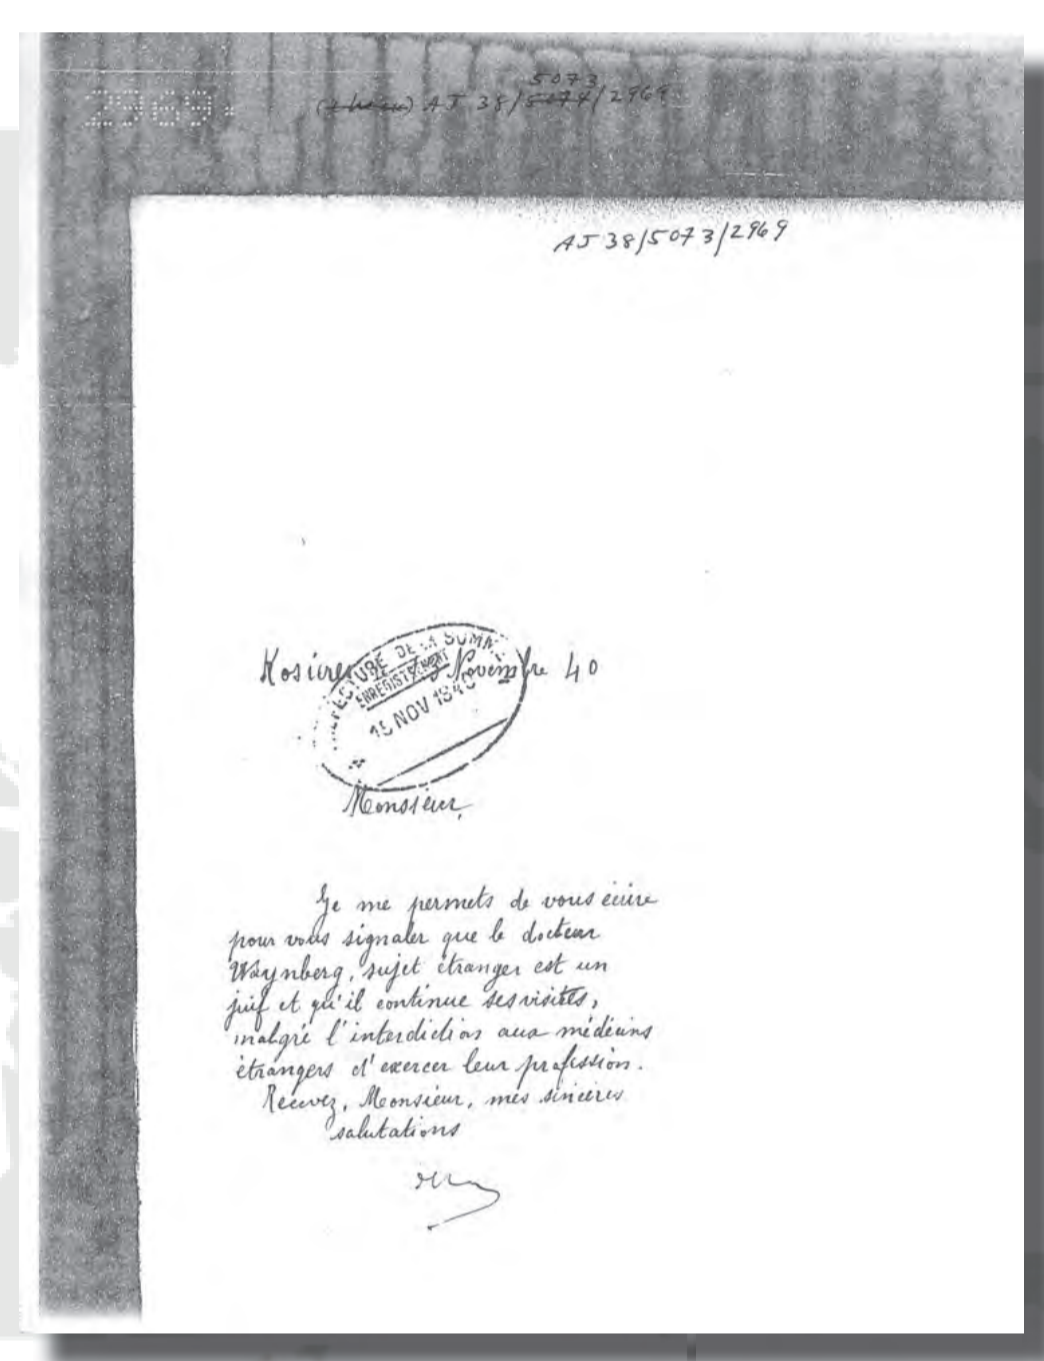 2969.
5073
AJ 38/5074/2969
AJ 38/5073/2969
Rosières Novembre 40
PREFECTURE DE LA SOMME
ENREGISTREMENT
15 NOV 1940
Monsieur,
Je me permets de vous écrire
pour vous signaler que le docteur
Waynberg, sujet étranger est un
juif et qu'il continue ses visites,
malgré l'interdiction aux médecins
étrangers d'exercer leur profession.
Recevez, Monsieur, mes sincères
salutations